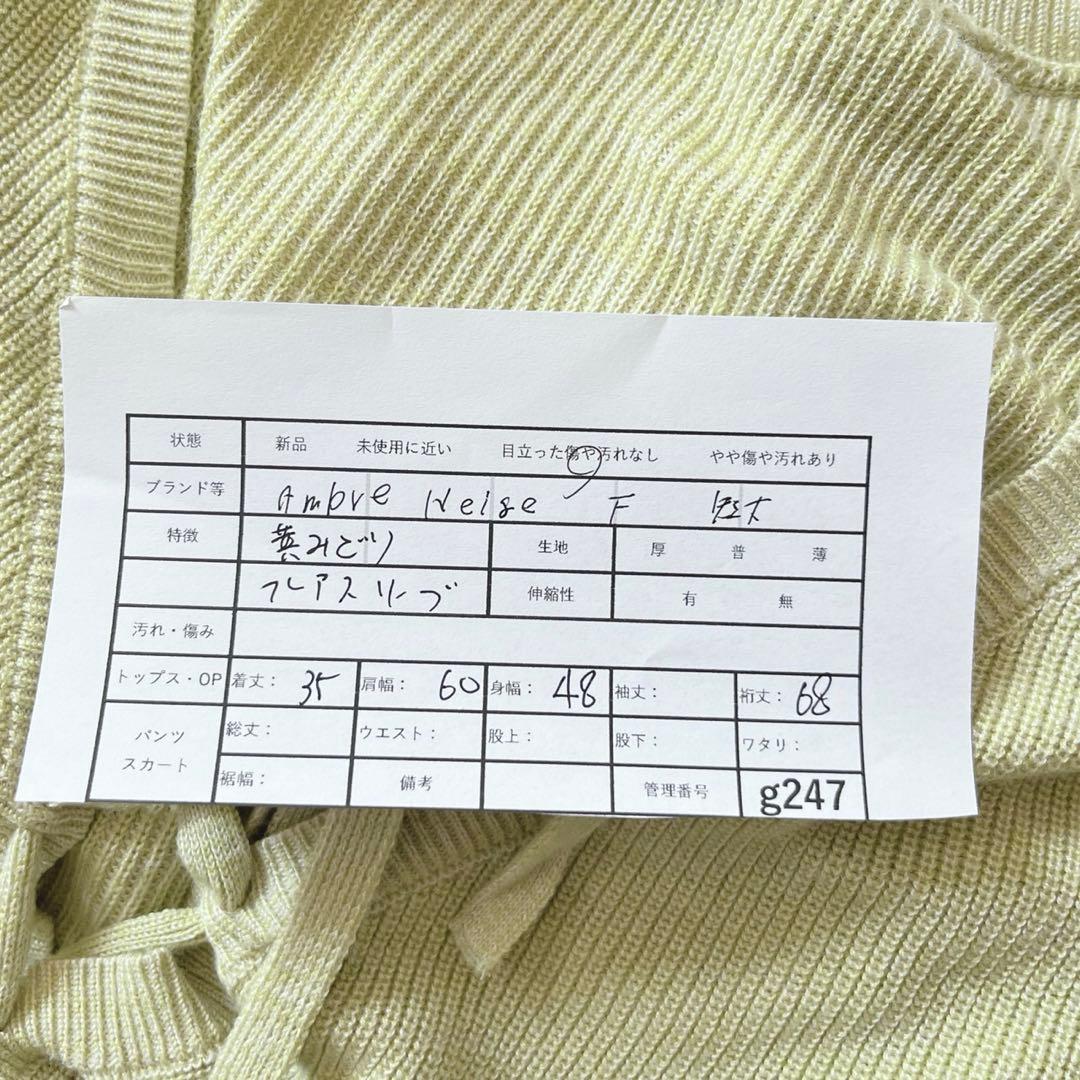 状態 新品 未使用に近い 目立った傷や汚れなし やや傷や汚れあり
ブランド等 Ambre Neige F 短丈
特徴 黄みどり 生地 厚 普 薄
フレアスリーブ 伸縮性 有 無
汚れ・傷み
トップス・OP 着丈: 35 肩幅: 60 身幅: 48 袖丈: 裄丈: 68
パンツ スカート 総丈: ウエスト: 股上: 股下: ワタリ:
裾幅: 備考 管理番号 g247